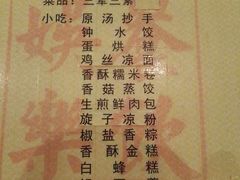 菜品：三荤三素
小吃：原汤抄手
钟水饺
蛋烘糕
鸡丝凉面
香酥糯米卷
香菇蒸饺
生煎鲜肉包
旋子凉粉
椒盐香粽
香酥金糕
白蜂糕